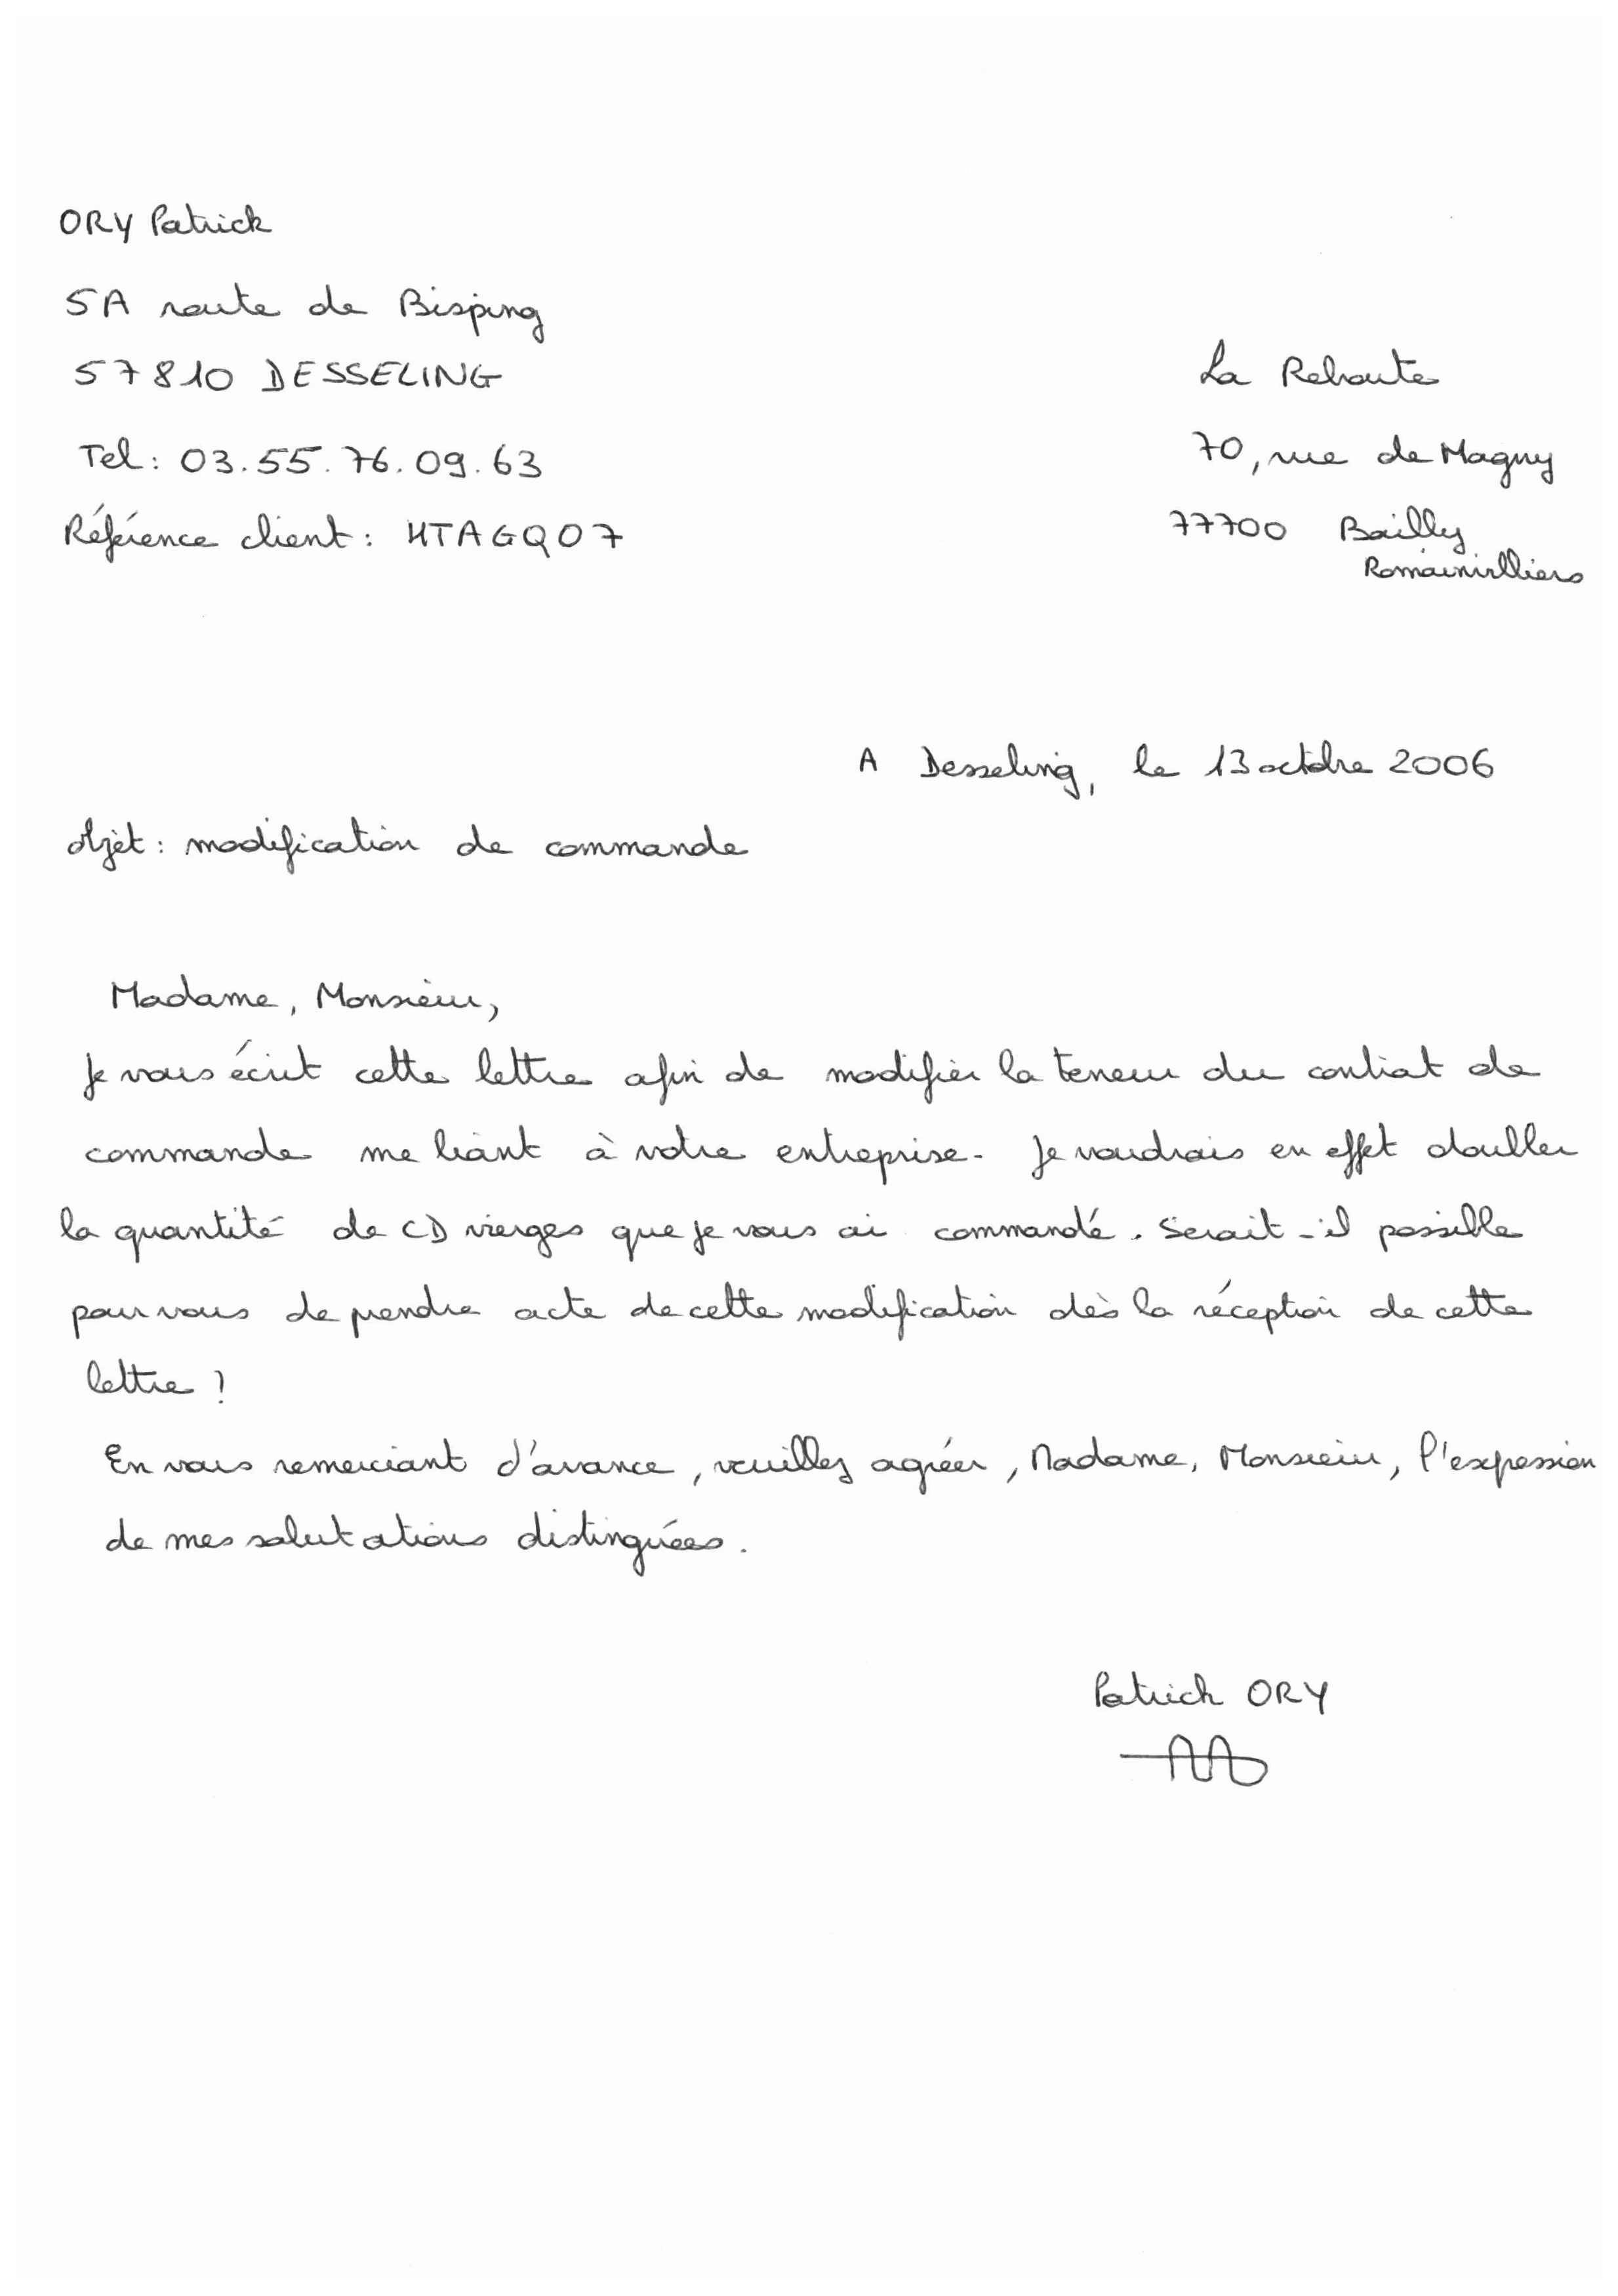 ORY Patrick
5A route de Bisping
57810 DESSELING
Tel : 03.55.76.09.63
Référence client : HTAGQ07
La Rehoute
70, rue de Magny
77700 Bailly
Romainvilliers
A Desseling, le 13 octobre 2006
Objet : modification de commande
Madame, Monsieur,
Je vous écrit cette lettre afin de modifier la teneur du contrat de
commande me liant à votre entreprise. Je voudrais en effet doubler
la quantité de CD vierges que je vous ai commandé. Serait-il possible
pour vous de prendre acte de cette modification dès la réception de cette
lettre ?
En vous remerciant d'avance, veuillez agréer, Madame, Monsieur, l'expression
de mes salutations distinguées.
Patrick ORY